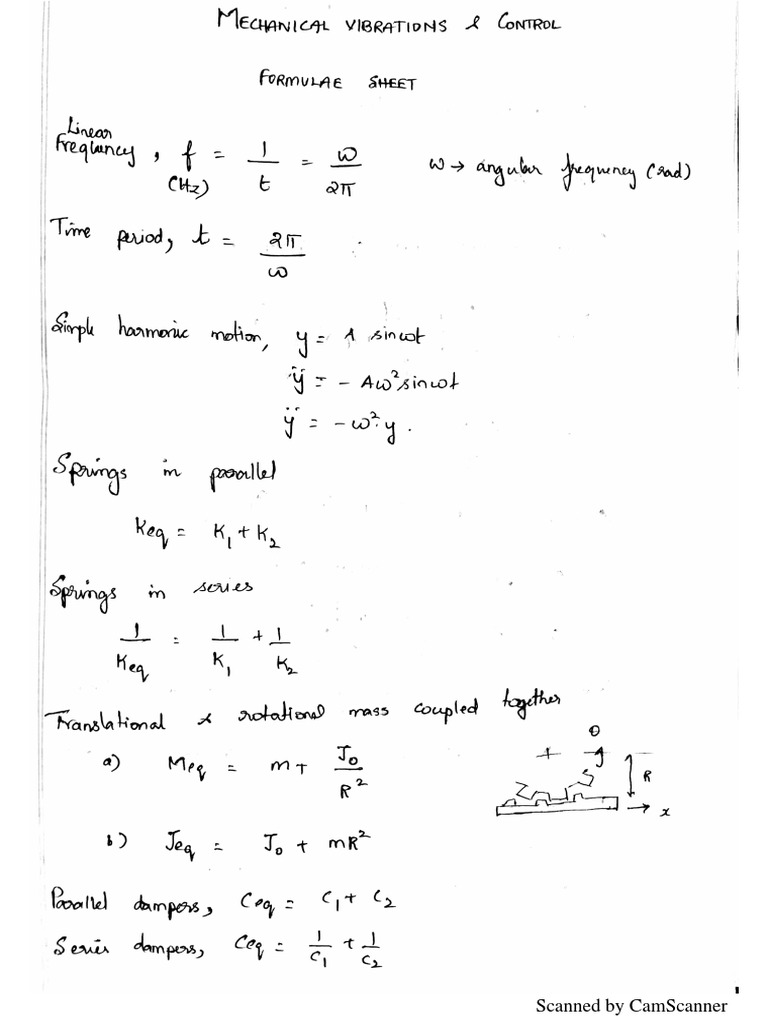 MECHANICAL VIBRATIONS & CONTROL
FORMULAE SHEET
Linear
Frequency, f = 1/t = ω/2π    ω → angular frequency (rad)
(Hz)
Time period, t = 2π/ω
Simple harmonic motion, y = A sinωt
ÿ = - Aω² sinωt
ÿ = - ω² y.
Springs in parallel
Keq = K₁ + K₂
Springs in series
1/Keq = 1/K₁ + 1/K₂
Translational & rotational mass coupled together
a) Meq = m + J₀/R²
θ
R
x
b) Jeq = J₀ + mR²
Parallel dampers, Ceq = C₁ + C₂
Series dampers, Ceq = 1/C₁ + 1/C₂
Scanned by CamScanner